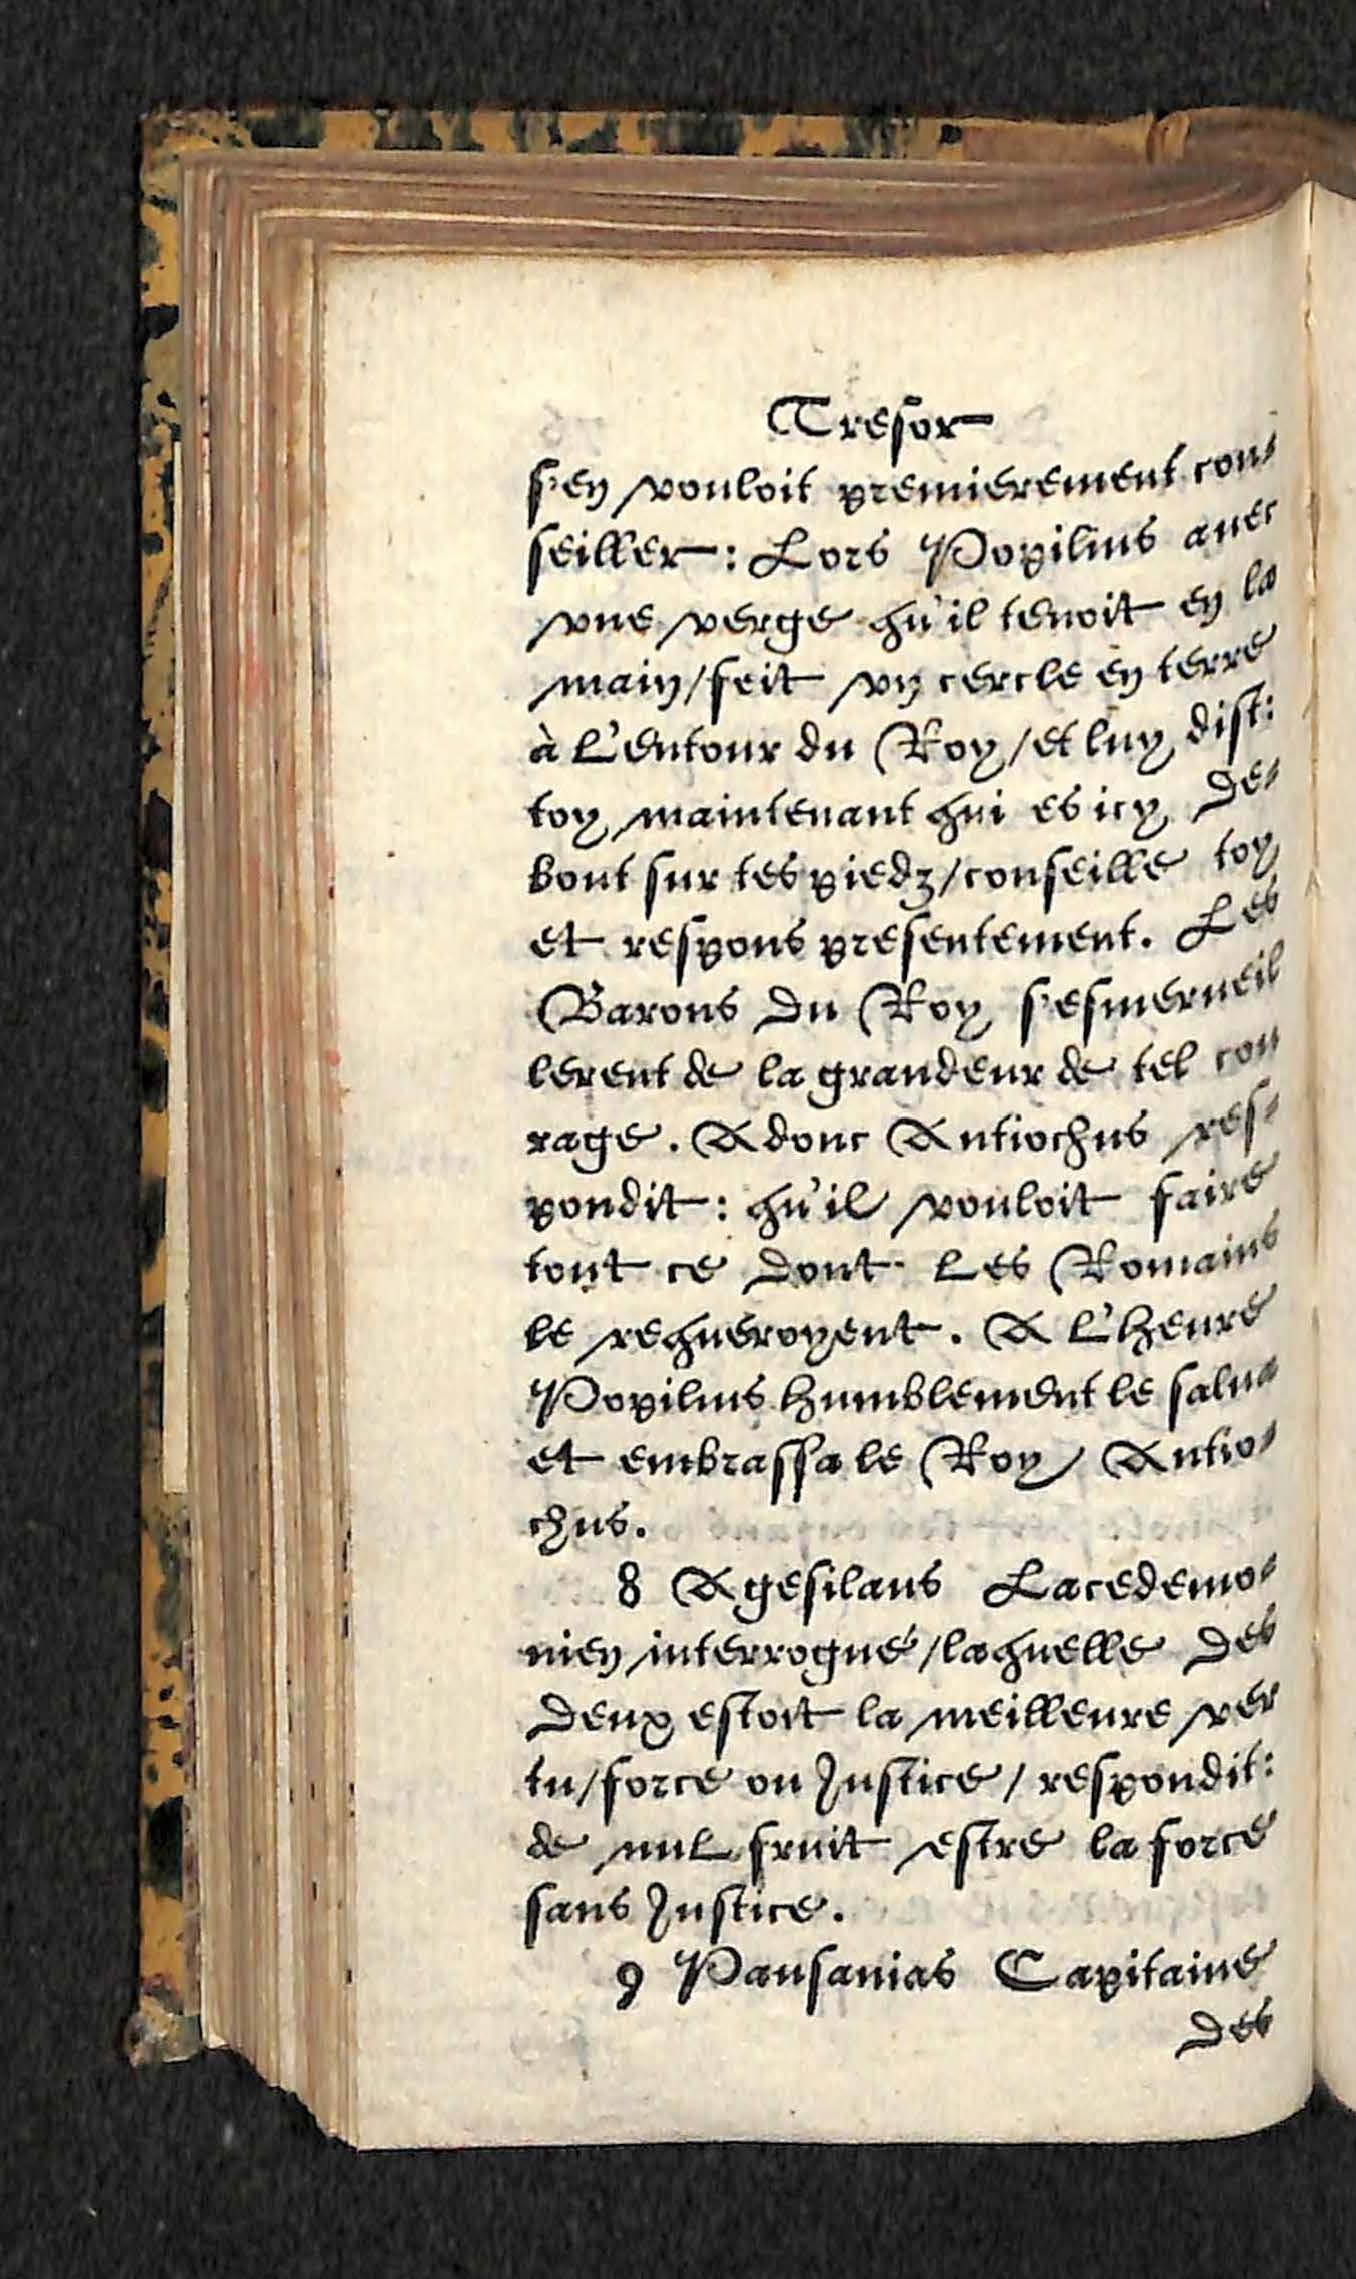 Tresor
s'en vouloit premierement con-
seiller: Lors Popilius auec
vne verge qu'il tenoit en la
main/feit vn cercle en terre
à l'entour du Roy/et luy dist:
toy maintenant qui es icy de-
bout sur tes piedz/conseille toy
et respons presentement. Les
Barons du Roy s'esmerueil
lerent de la grandeur de tel cou
rage. Adonc Antiochus res-
pondit: qu'il vouloit faire
tout ce dont les Romains
le requeroyent. A l'heure
Popilius humblement le salua
et embrassa le Roy Antio-
chus.
8 Agesilaus Lacedemo-
nien interrogué/laquelle des
deux estoit la meilleure ver
tu/force ou Justice/ respondit:
de nul fruit estre la force
sans Justice.
9 Pausanias Capitaine
des